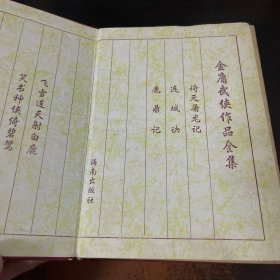 金庸武侠作品全集
倚天屠龙记
连城诀
鹿鼎记
海南出版社
飞雪连天射白鹿
笑书神侠倚碧鸳